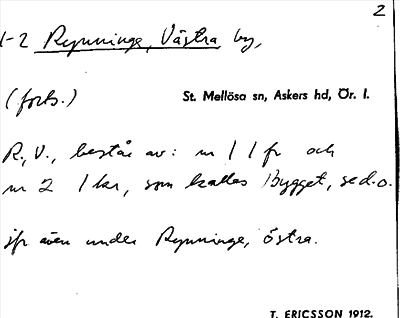 2
1-2 Rynninge, Västra by,
(forts.)
St. Mellösa sn, Askers hd, Ör. l.
R., V., består av: nr 1 1 fr och
nr 2 1 kr, som kallas Bygget, se d.o.
jfr även under Rynninge, Östra.
T. ERICSSON 1912.